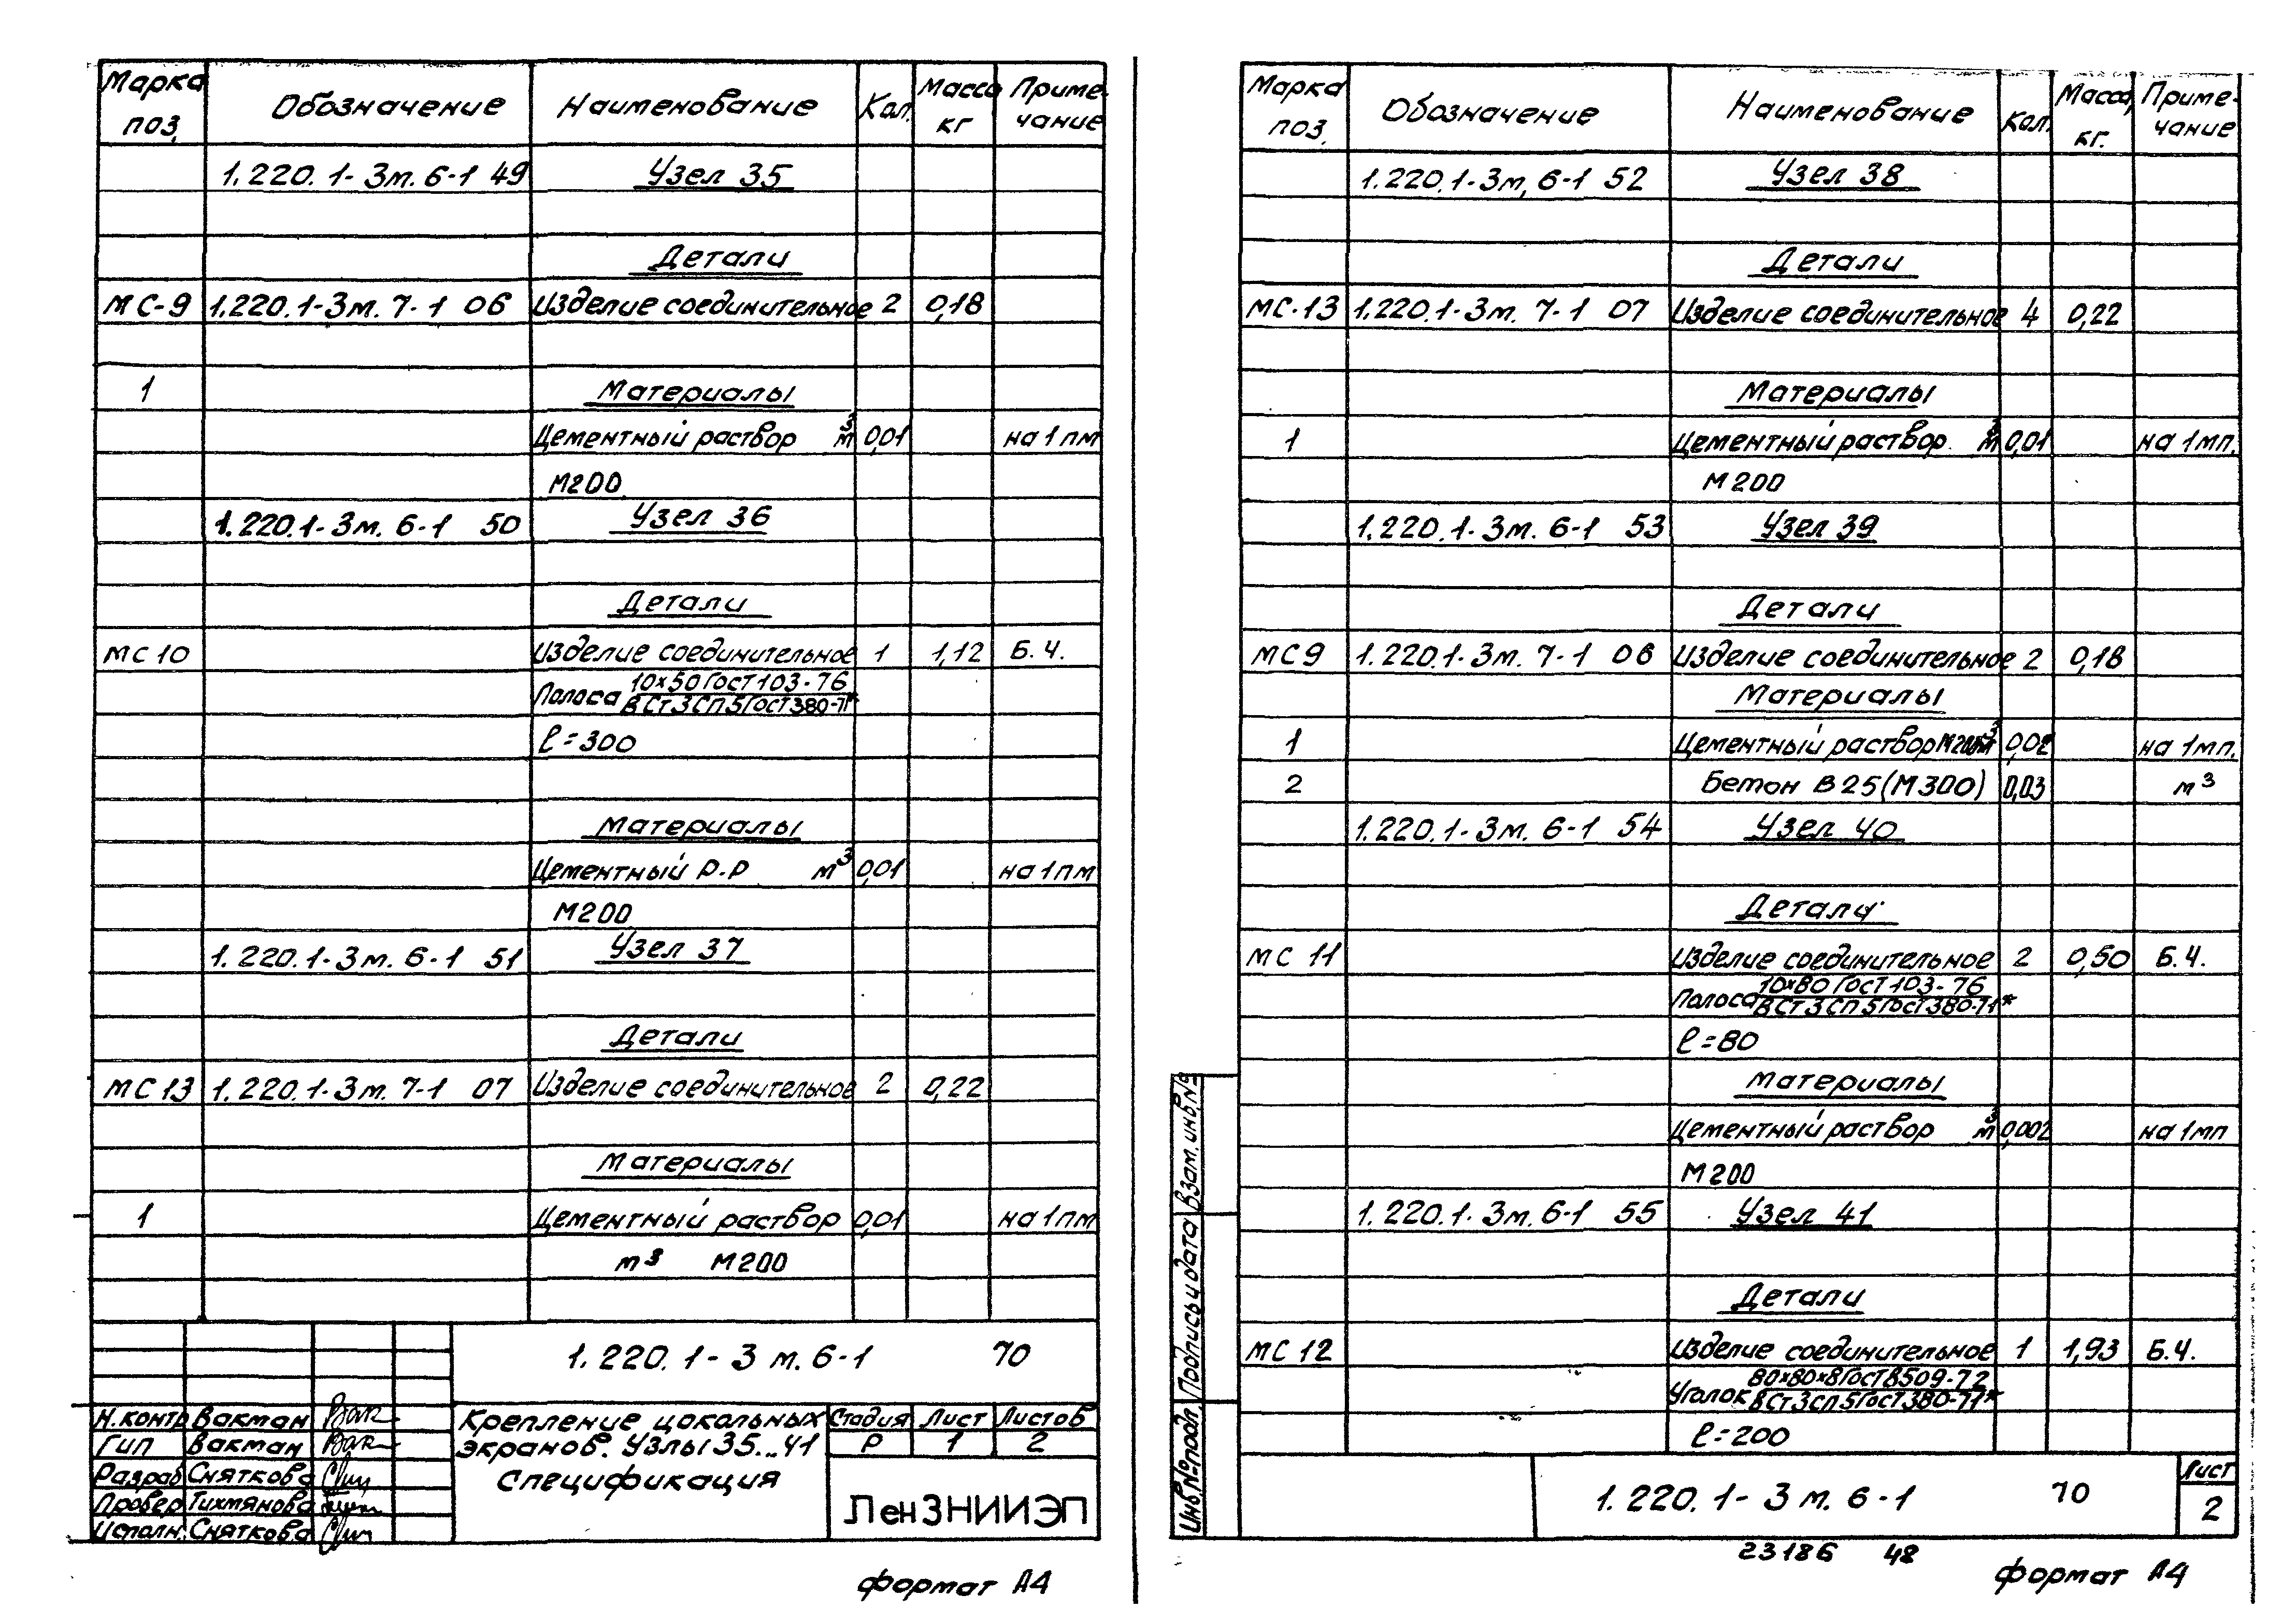 Марка поз. Обозначение Наименование Кол. Масса кг Приме-чание
1.220.1-3м.6-1 49 Узел 35
Детали
МС-9 1.220.1-3м.7-1 06 Изделие соединительное 2 0,18
1 Материалы
Цементный раствор м³ 0,01 на 1 пм
М200
1.220.1-3м.6-1 50 Узел 36
Детали
МС10 Изделие соединительное 1 1,12 Б.Ч.
Полоса 10×50 ГОСТ 103-76 / ВСт3сп5 ГОСТ 380-71*
ℓ=300
Материалы
Цементный р-р м³ 0,01 на 1пм
М200
1.220.1-3м.6-1 51 Узел 37
Детали
МС13 1.220.1-3м.7-1 07 Изделие соединительное 2 0,22
Материалы
1 Цементный раствор 0,01 на 1пм
м³ М200
1.220.1-3м.6-1 70
Н.контр Вакман
Гип Вакман
Разраб Сняткова
Провер Тихмянова
Исполн. Сняткова
Крепление цокольных
экранов. Узлы 35...41
Спецификация
Стадия Лист Листов
Р 1 2
ЛенЗНИИЭП
формат А4
Марка поз. Обозначение Наименование Кол. Масса, кг. Приме-чание
1.220.1-3м,6-1 52 Узел 38
Детали
МС-13 1.220.1-3м.7-1 07 Изделие соединительное 4 0,22
Материалы
1 Цементный раствор. м³ 0,01 на 1мп.
М200
1.220.1-3м.6-1 53 Узел 39
Детали
МС9 1.220.1-3м.7-1 06 Изделие соединительное 2 0,18
Материалы
1 Цементный раствор М200 м³ 0,02 на 1мп.
2 Бетон В25(М300) 0,03 м³
1.220.1-3м.6-1 54 Узел 40
Детали
МС 11 Изделие соединительное 2 0,50 Б.Ч.
Полоса 10×80 ГОСТ 103-76 / ВСт3сп5 ГОСТ 380-71*
ℓ=80
Материалы
Цементный раствор м³ 0,002 на 1мп
М200
1.220.1-3м.6-1 55 Узел 41
Детали
МС 12 Изделие соединительное 1 1,93 Б.Ч.
Уголок 80×80×8 ГОСТ 8509-72 / ВСт3сп5 ГОСТ 380-71*
ℓ=200
Взам. инв №
Подпись и дата
Инв № подл.
1.220.1-3м.6-1 70
Лист
2
23186 48
формат А4